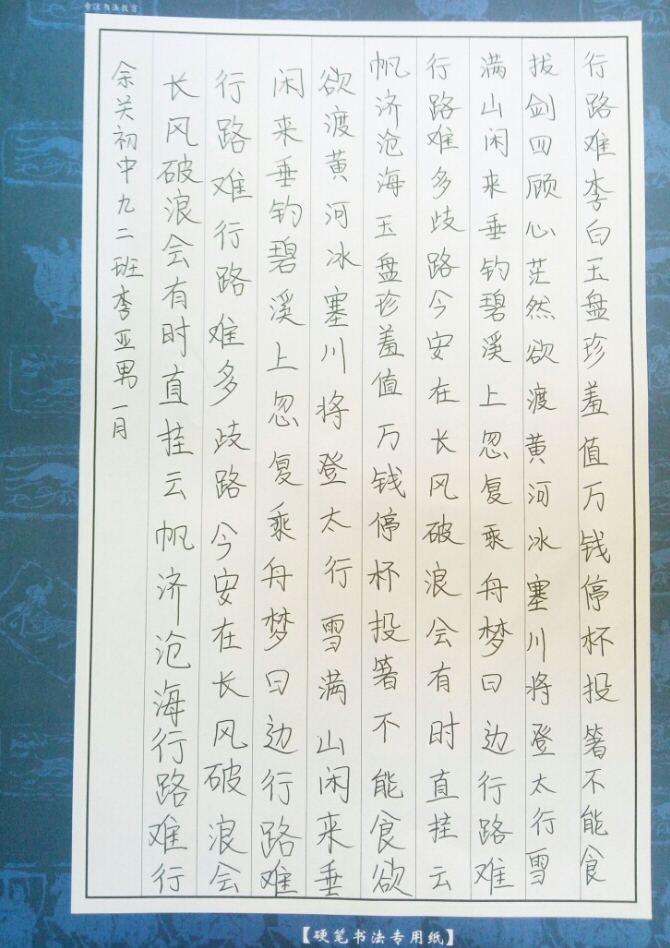 专注书法教育
行路难李白玉盘珍羞值万钱停杯投箸不能食
拔剑四顾心茫然欲渡黄河冰塞川将登太行雪
满山闲来垂钓碧溪上忽复乘舟梦日边行路难
行路难多歧路今安在长风破浪会有时直挂云
帆济沧海玉盘珍羞值万钱停杯投箸不能食欲
欲渡黄河冰塞川将登太行雪满山闲来垂
闲来垂钓碧溪上忽复乘舟梦日边行路难
行路难行路难多歧路今安在长风破浪会
长风破浪会有时直挂云帆济沧海行路难行
余关初中九二班李亚男一月
【硬笔书法专用纸】